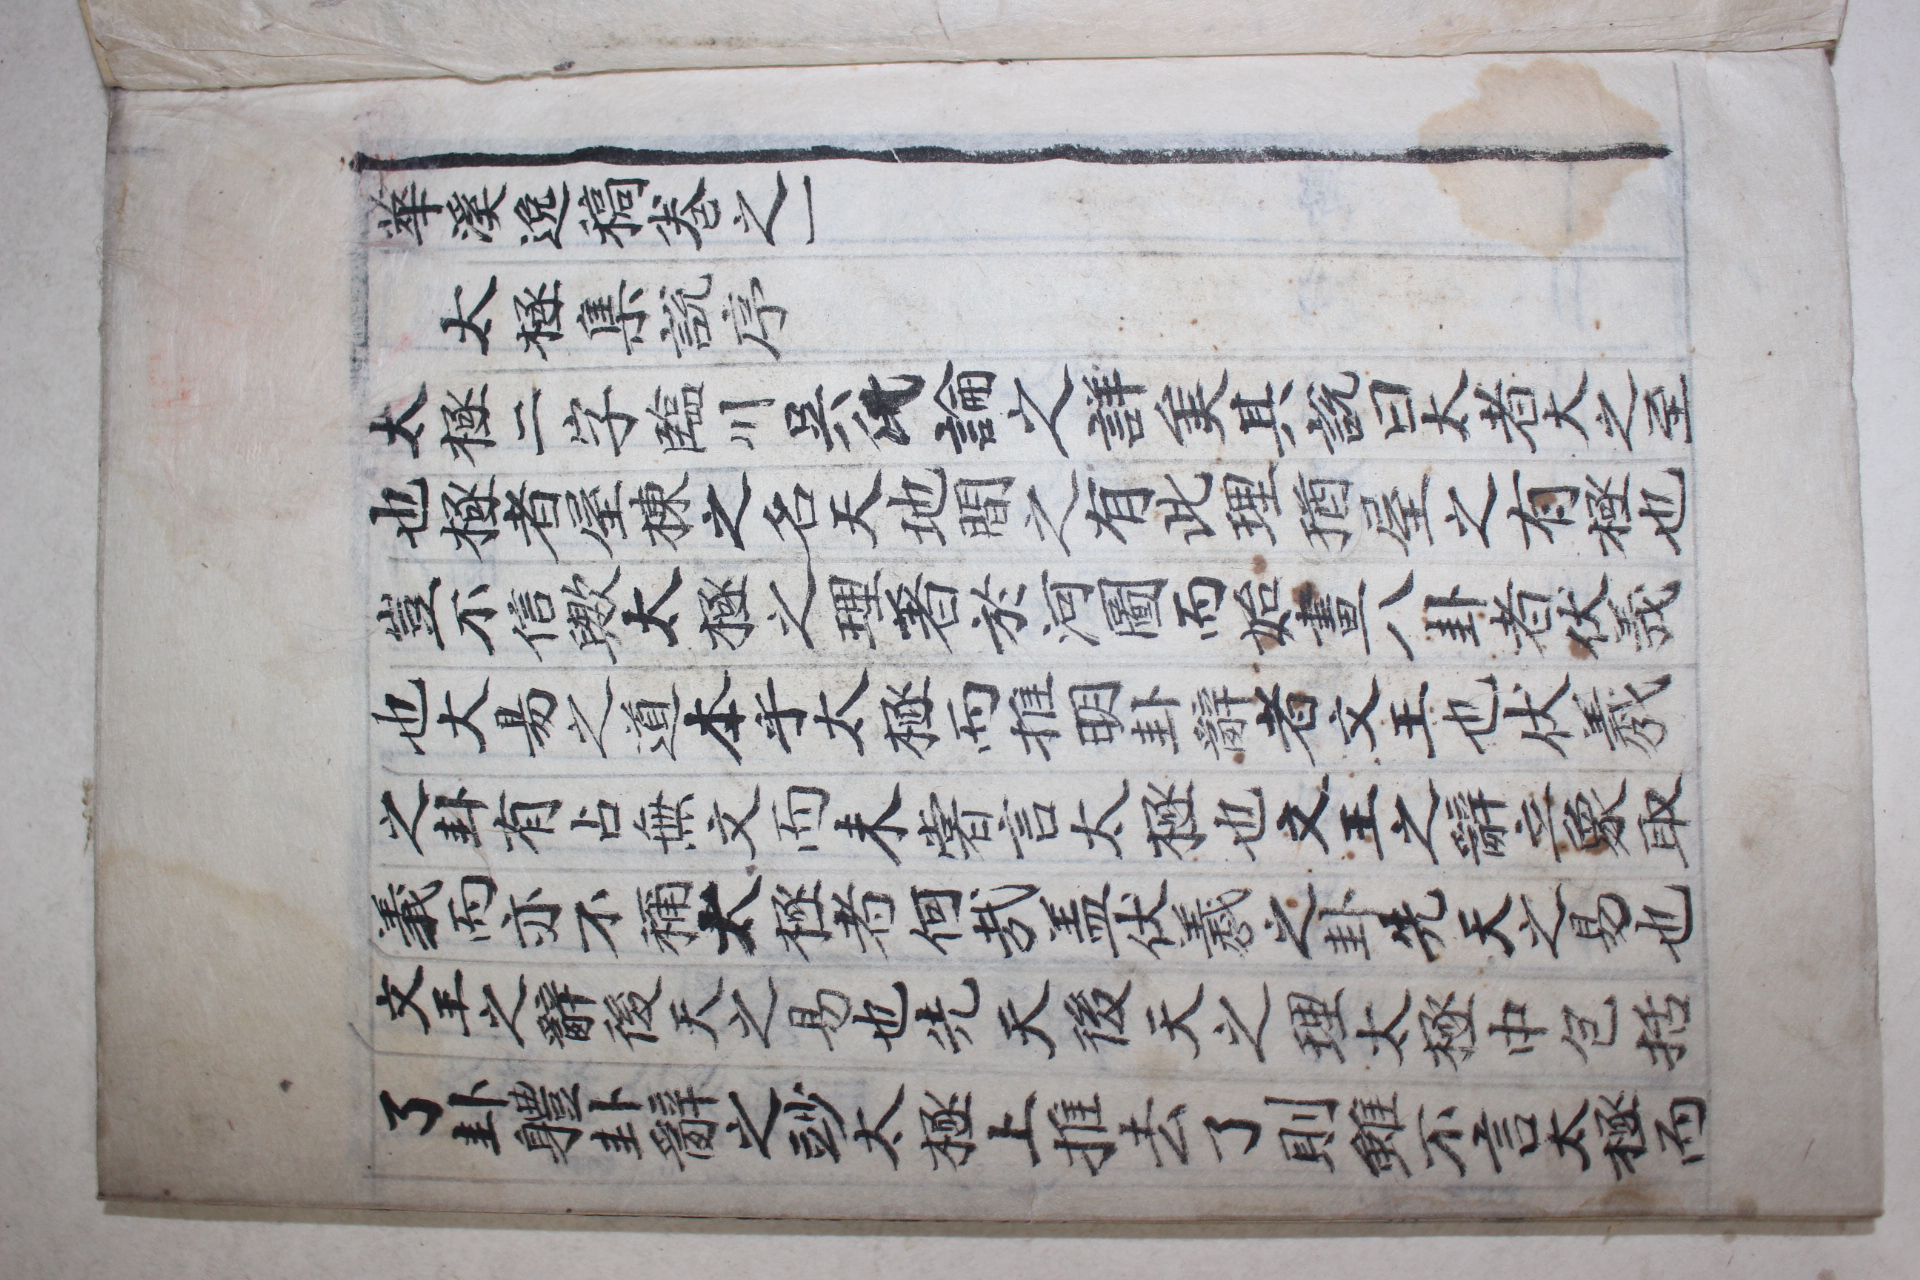 華溪逸稿卷之一
太極集說序
太極二字臨川吳氏論之詳矣其說曰太者大之至
也極者屋棟之名天地間之有此理猶屋之有極也
豈不信歟太極之理著於河圖而始畫八卦者伏羲
也大易之道本乎太極而推明卦辭者文王也伏羲
之卦有占無文而未甞言太極也文王之辭立象取
義而亦不稱太極者何哉盖伏羲之卦先天之易也
文王之辭後天之易也先天後天之理太極中包括
了卦體卦辭之玅太極上推去了則雖不言太極而